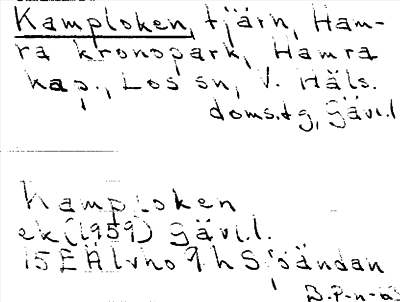 Kamploken, tjärn, Ham-
ra kronopark, Hamra
kap., Los sn, V. Häls.
doms.tg, Gävl.l
Kamploken
ek (1959) Gävl.l.
15E Älvho 9h S